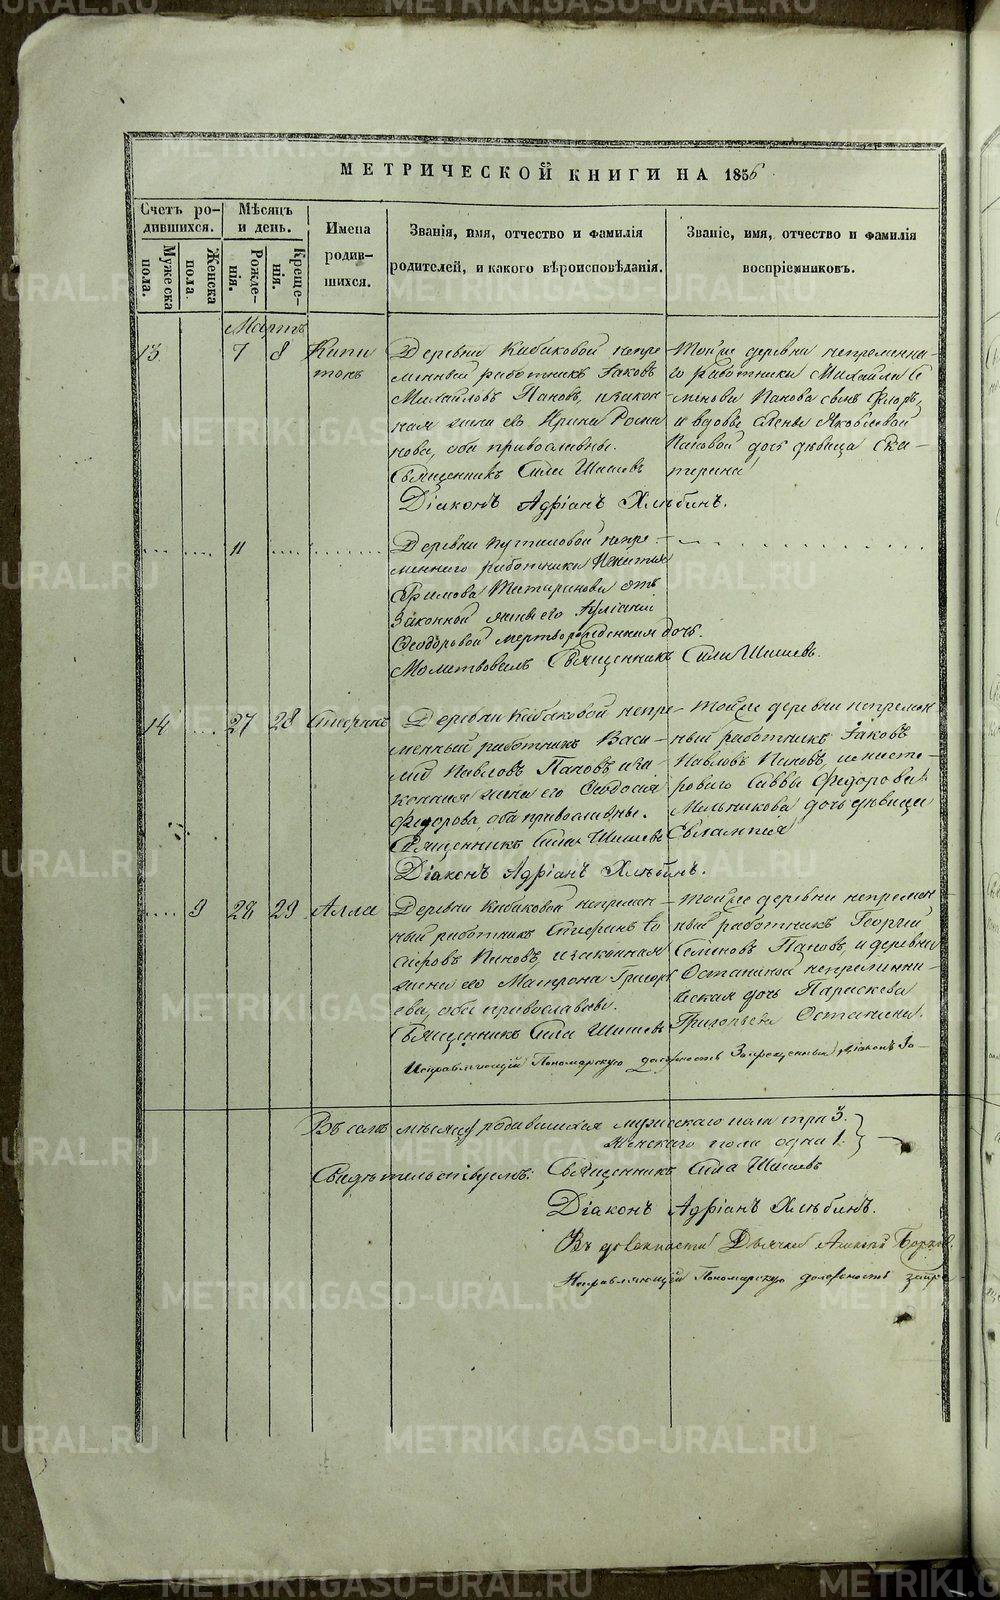 МЕТРИЧЕСКОЙ КНИГИ НА 1856
Счетъ ро-
дившихся.
Мѣсяцъ
и день.
Имена
родив-
шихся.
Званія, имя, отчество и фамилія
родителей, и какого вѣроисповѣданія.
Званіе, имя, отчество и фамилія
воспріемниковъ.
Мужеска
пола.
Женска
пола
Рожде-
нія.
Креще-
нія.
Мартъ
13 7 8 Капи
тонъ
Деревни Кабаковой непре
менный работникъ Іаковъ
Михайловъ Пановъ, и закон
ная жена его Ирина Рома
нова, оба православны.
Священникъ Сила Шишевъ
Діаконъ Адріанъ Хлѣбинъ.
Тойже деревни непременна-
го работника Михаила Се
менова Панова сынъ Флоръ,
и вдовы Елены Яковлевой
Пановой дочь девица Ека-
терина
11
Деревни непре
меннаго работника Никиты
Ефимова Татаринова отъ
Законной жены его
Феодоровой мертворожденная дочь.
Молитвовалъ Священникъ Сила Шишевъ.
14 27 28
Деревни Кабаковой непре-
менный работникъ Васи-
лій Павловъ Пановъ и за
конная жена его Феодосія
Федорова, оба православны.
Священникъ Сила Шишевъ
Діаконъ Адріанъ Хлѣбинъ.
Тойже деревни непремен
ный работникъ Іаковъ
Павловъ Пановъ, и
Саввы Федорова
Мельникова дочь девица
Евлампія
9 28 29 Алла
Деревни Кабаковой непремен-
ный работникъ
Пановъ, и законная
жена его Матрона Григорь
ева, оба православны.
Священникъ Сила Шишевъ
Исправляющій Пономарскую должность Запрещенный Діаконъ
Тойже деревни непремен
ный работникъ Георгій
Семеновъ Пановъ, и деревни
Останиной
дочь Параскева
Григорьева Останина.
Въ семъ мѣсяцѣ родившихся мужескаго пола три 3.
Женскаго пола одна 1.
Свидѣтельствуемъ: Священникъ Сила Шишевъ
Діаконъ Адріанъ Хлѣбинъ.
Въ должности Дьячка Алексѣй
Исправляющій Пономарскую должность
METRIKI.GASO-URAL.RU